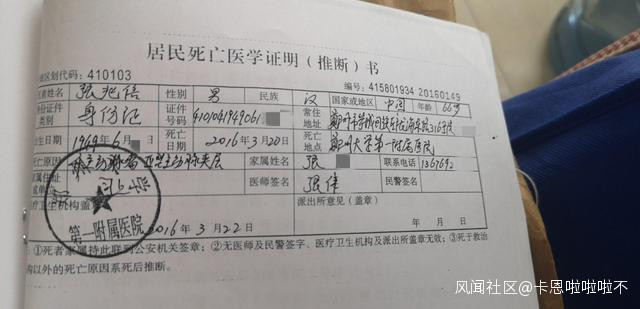 居民死亡医学证明（推断）书
区划代码：410103 编号：415801934 20160149
者姓名 张兆信 性别 男 民族 汉 国家或地区 中国 年龄 66岁
身份证件类别 身份证 证件号码 410104194906 常住地址
生日期 1969年6月 死亡日期 2016年3月20日 死亡地点 郑州大学第一附属医院
死亡原因 主动脉夹层 家属姓名 张 联系电话 1367692
医师签名 民警签名
疗卫生机构盖章 2016年3月22日 派出所意见（盖章） 年 月 日
第一附属医院
：①死者家属持此联到公安机关签章；②无医师及民警签字、医疗卫生机构及派出所盖章无效；③死于救治
构以外的死亡原因系死后推断。
风闻社区@卡恩啦啦啦不